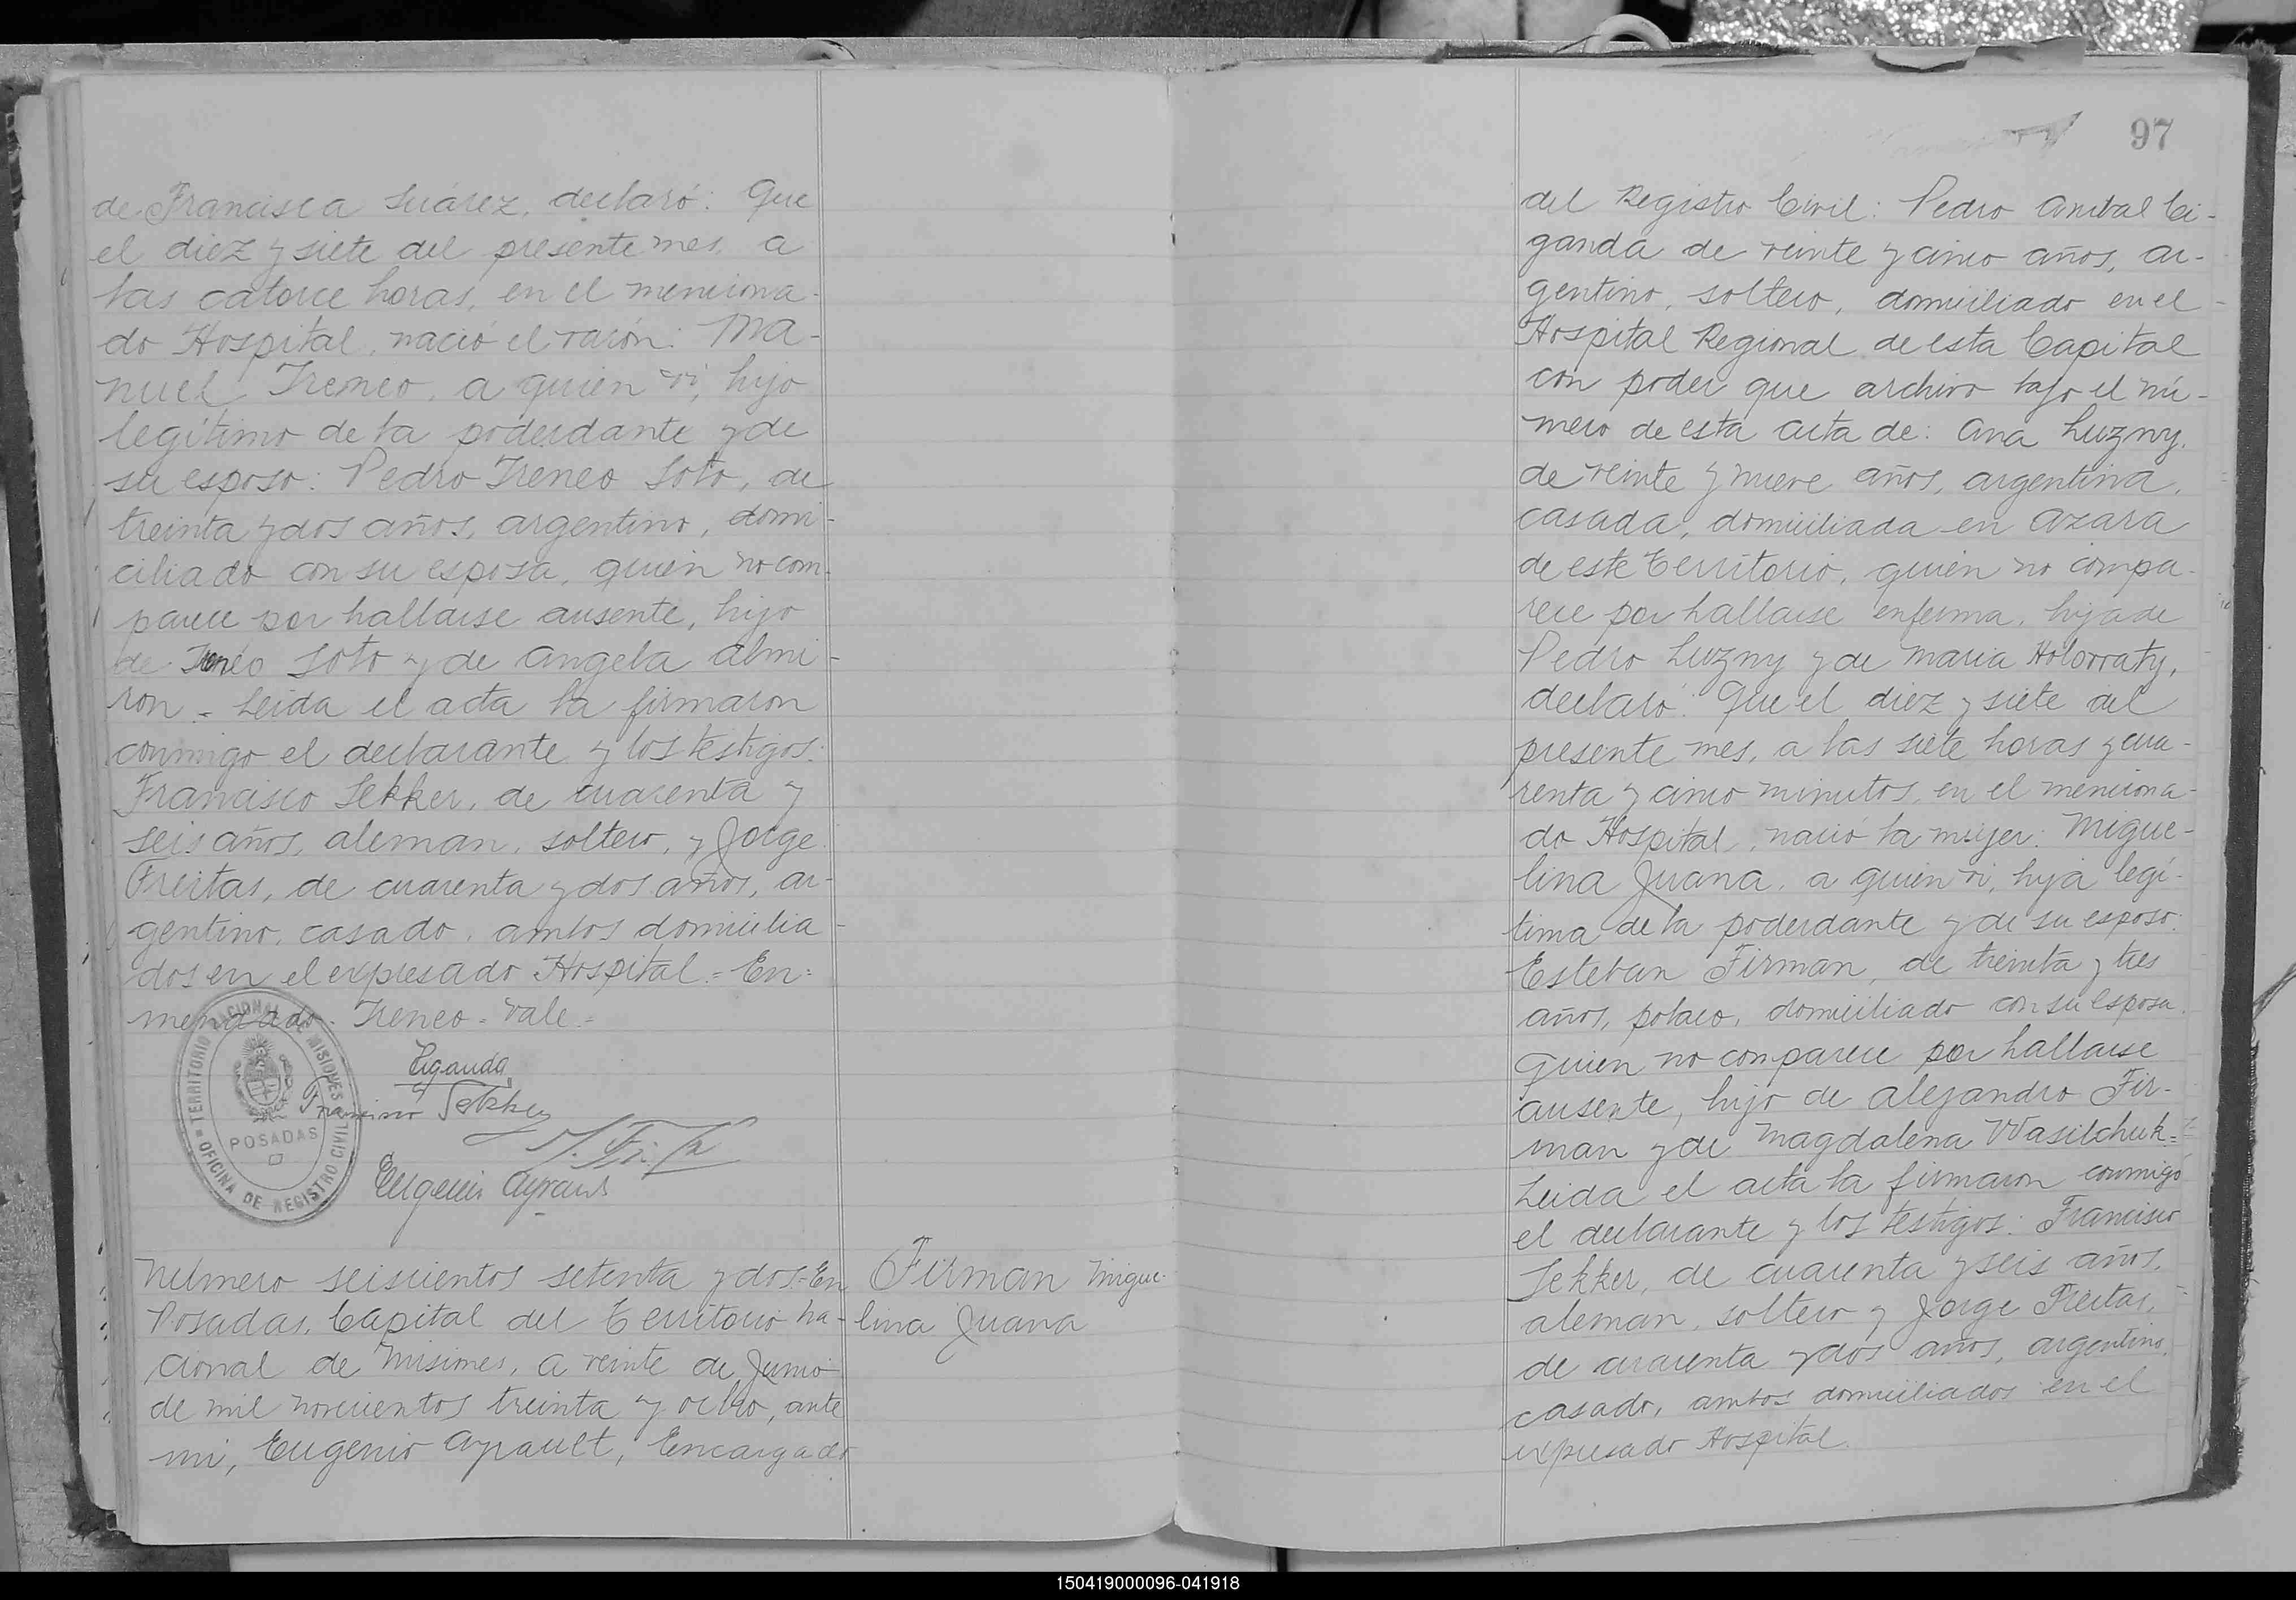 de Francisca Suárez, declaró: Que
el diez y siete del presente mes, a
las catorce horas, en el menciona-
do Hospital, nació el varón: Ma-
nuel Ireneo, a quien vi, hijo
legítimo de la poderdante y de
su esposo: Pedro Ireneo Soto, de
treinta y dos años, argentino, domi-
ciliado con su esposa, quien no com-
parece por hallarse ausente, hijo
de Ireneo Soto y de Angela Almi-
rón - Leida el acta la firmaron
conmigo el declarante y los testigos:
Francisco Sekker, de cuarenta y
seis años, aleman, soltero, y Jorge
Freitas, de cuarenta y dos años, ar-
gentino, casado, ambos domicilia-
dos en el expresado Hospital = En-
mendado - Ireneo - Vale -
Ciganda
Francisco Sekker
Eugenio Ayrault
TERRITORIO NACIONAL DE MISIONES
POSADAS
OFICINA DE REGISTRO CIVIL
Número seiscientos setenta y dos = En
Posadas, Capital del Territorio Na-
cional de Misiones, a veinte de Junio
de mil novecientos treinta y ocho, ante
mi, Eugenio Ayrault, Encargado
Firman Migue-
lina Juana
97
del Registro Civil: Pedro Anibal Ci-
ganda de veinte y cinco años, ar-
gentino, soltero, domiciliado en el
Hospital Regional de esta Capital
con poder que archivo bajo el nú-
mero de esta acta de: Ana Luzny,
de veinte y nueve años, argentina,
casada, domiciliada en Azara
de este Territorio, quien no compa-
rece por hallarse enferma, hija de
Pedro Luzny y de Maria Holovaty,
declaró: Que el diez y siete del
presente mes, a las siete horas y cua-
renta y cinco minutos, en el menciona-
do Hospital, nació la mujer: Migue-
lina Juana, a quien vi, hija legí-
tima de la poderdante y de su esposo:
Esteban Firman, de treinta y tres
años, polaco, domiciliado con su esposa,
quien no comparece por hallarse
ausente, hijo de Alejandro Fir-
man y de Magdalena Wasilchuk =
Leida el acta la firmaron conmigo
el declarante y los testigos: Francisco
Sekker, de cuarenta y seis años,
aleman, soltero y Jorge Freitas,
de cuarenta y dos años, argentino,
casado, ambos domiciliados en el
expresado Hospital.
150419000096-041918